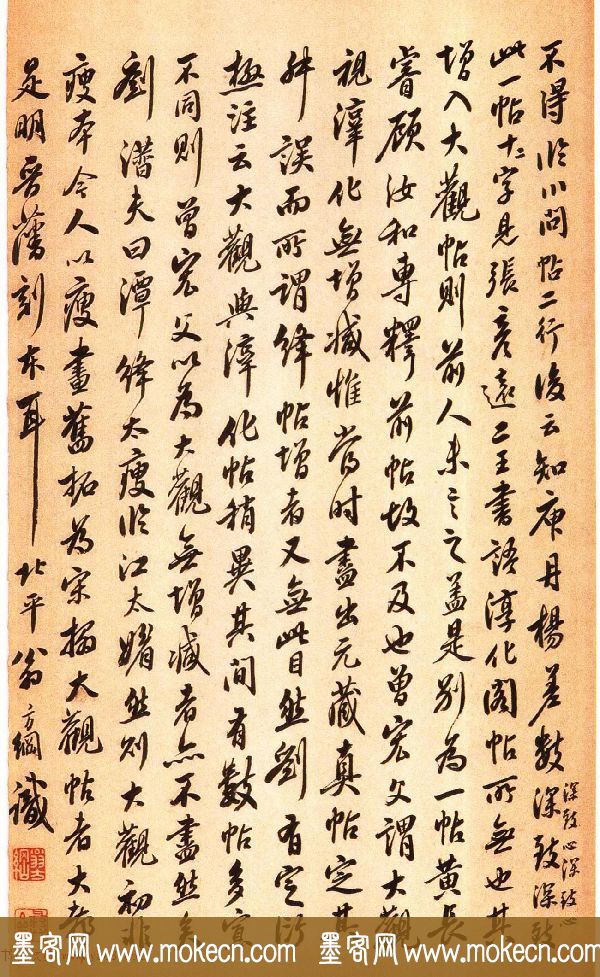 不得臨川問帖二行後云知庾丹楊差數深致深致
深致心深致心
此一帖十二字見張彥遠二王書語淳化閣帖所無也其
增入大觀帖則前人未言之蓋是別為一帖黃長
睿顧汝和專釋前帖故不及也曾宏父謂大觀
視淳化無增減惟當時盡出元藏真帖定其
舛誤而所謂絳帖增者又無此目然劉有定衍
極注云大觀與淳化帖稍異其間有數帖多寡
不同則曾宏父以為大觀無增減者亦不盡然矣
劉潛夫曰潭絳太瘦臨江太媚然則大觀初非
瘦本今人以瘦畫舊拓為宋搨大觀帖者大都
是明晉藩刻本耳 北平翁方綱識
墨客网 www.mokecn.com 墨客网 www.mokecn.com